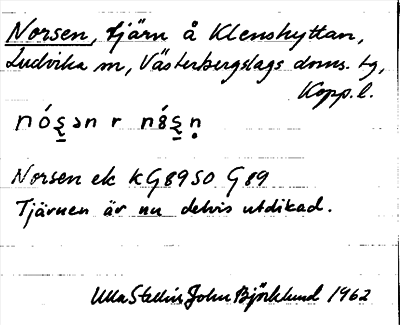 Norsen, tjärn å Klenshyttan,
Ludvika sn, Västerbergslags doms. tg,
Kopp. l.
Norsen ek KG8950 G89
Tjärnen är nu delvis utdikad.
Ulla Stellin John Björklund 1962